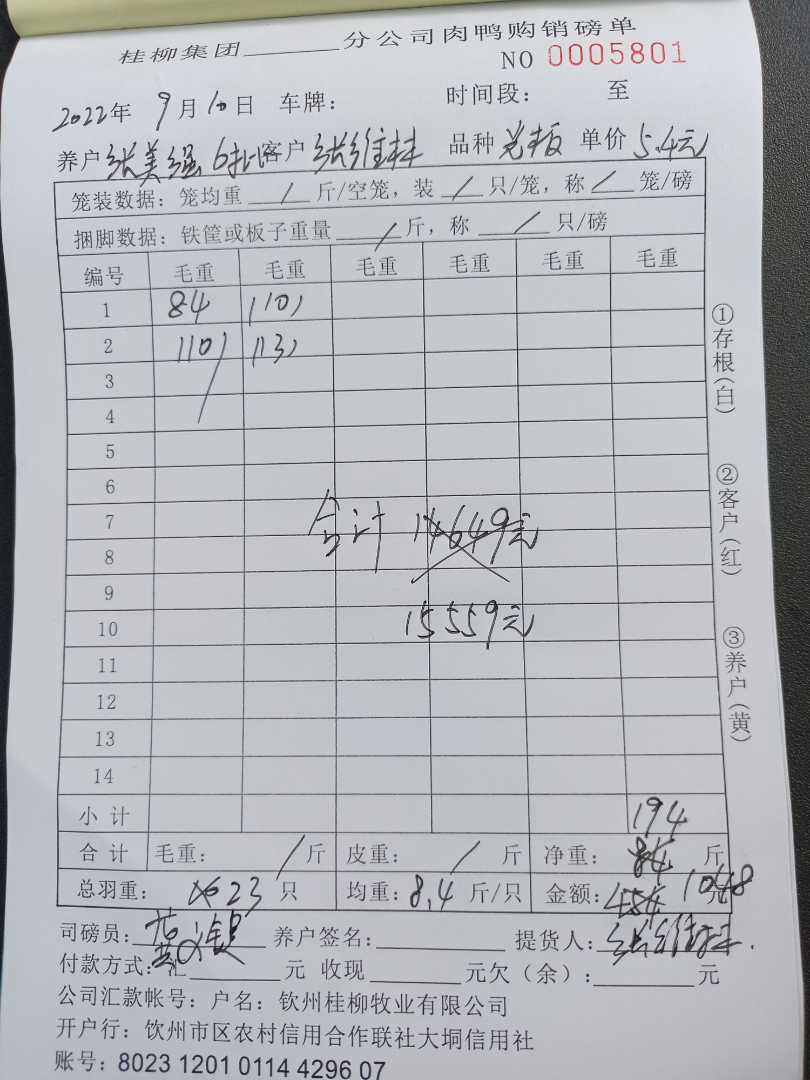 桂柳集团______分公司肉鸭购销磅单
NO 0005801
2022年 9月10日 车牌: 时间段: 至
养户 张美强 6批 客户 张维林 品种 光板 单价 5.4元
笼装数据: 笼均重 / 斤/空笼, 装 / 只/笼, 称 / 笼/磅
捆脚数据: 铁筐或板子重量 / 斤, 称 / 只/磅
编号 毛重 毛重 毛重 毛重 毛重 毛重
1 84 110)
2 110) 13)
3
4
5
6
7
合计 14649元
8
9
10 15559元
11
12
13
14
小计 194
合计 毛重: / 斤 皮重: / 斤 净重: 84 斤
总羽重: 10 23 只 均重: 8.4 斤/只 金额: 454 1048 元
司磅员: 养户签名: 提货人: 张维林
付款方式: 汇 元 收现 元欠(余): 元
公司汇款帐号: 户名: 钦州桂柳牧业有限公司
开户行: 钦州市区农村信用合作联社大垌信用社
账号: 8023 1201 0114 4296 07
①存根(白)
②客户(红)
③养户(黄)